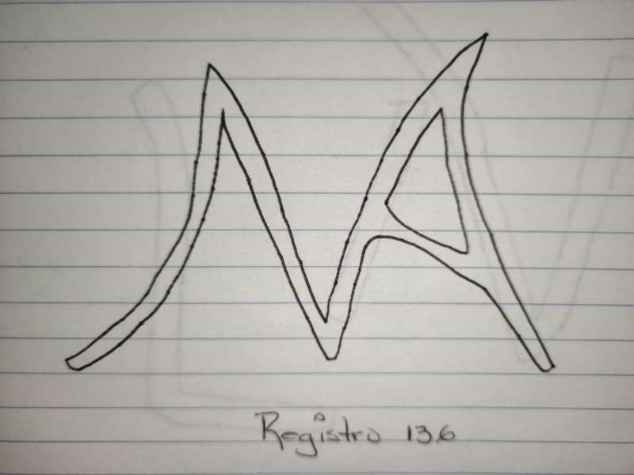 MA
Registro 136